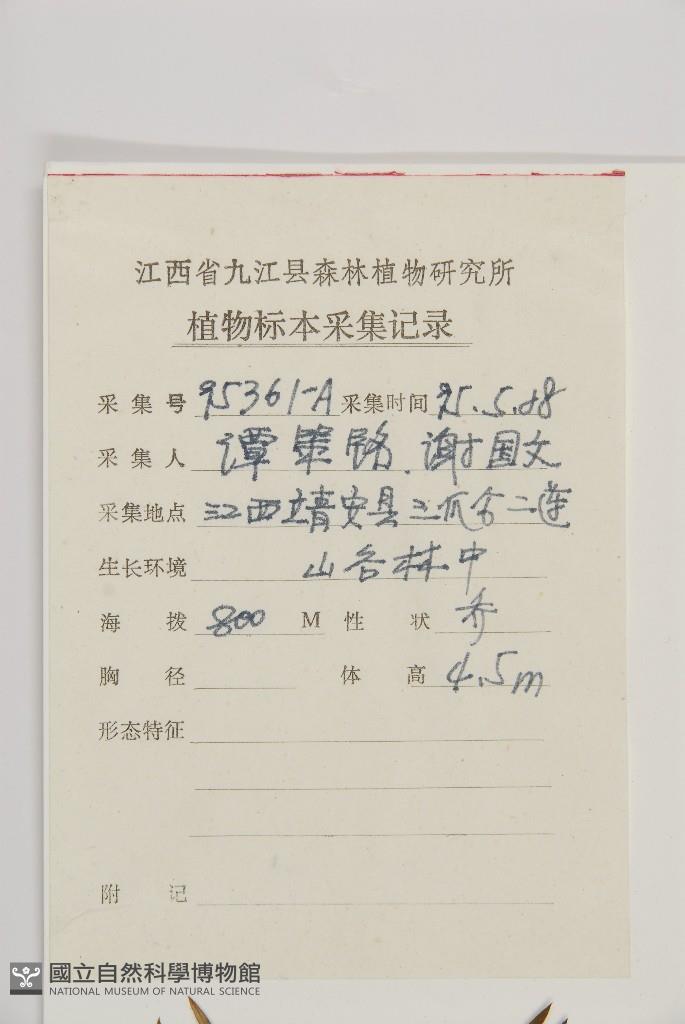 江西省九江县森林植物研究所
植物标本采集记录
采集号 95361-A 采集时间 95.5.18
采集人 谭策铭.谢国文
采集地点 江西靖安县三爪仑二
生长环境 山谷林中
海拨 800 M 性状 乔
胸径 体高 4.5m
形态特征
附记
國立自然科學博物館
NATIONAL MUSEUM OF NATURAL SCIENCE